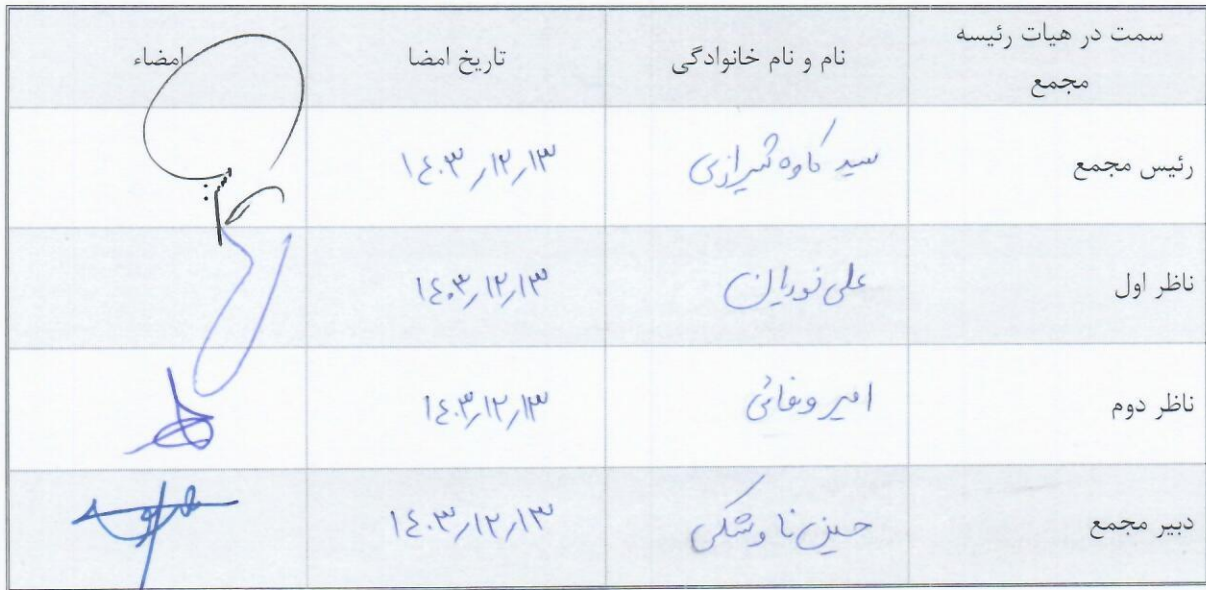 سمت در هیات رئیسه مجمع	نام و نام خانوادگی	تاریخ امضا	امضاء
رئیس مجمع	سید کاوه شیرازی	۱۴۰۳/۱۲/۱۳
ناظر اول	علی نوریان	۱۴۰۳/۱۲/۱۳
ناظر دوم	امیر وفائی	۱۴۰۳/۱۲/۱۳
دبیر مجمع	حسین	۱۴۰۳/۱۲/۱۳